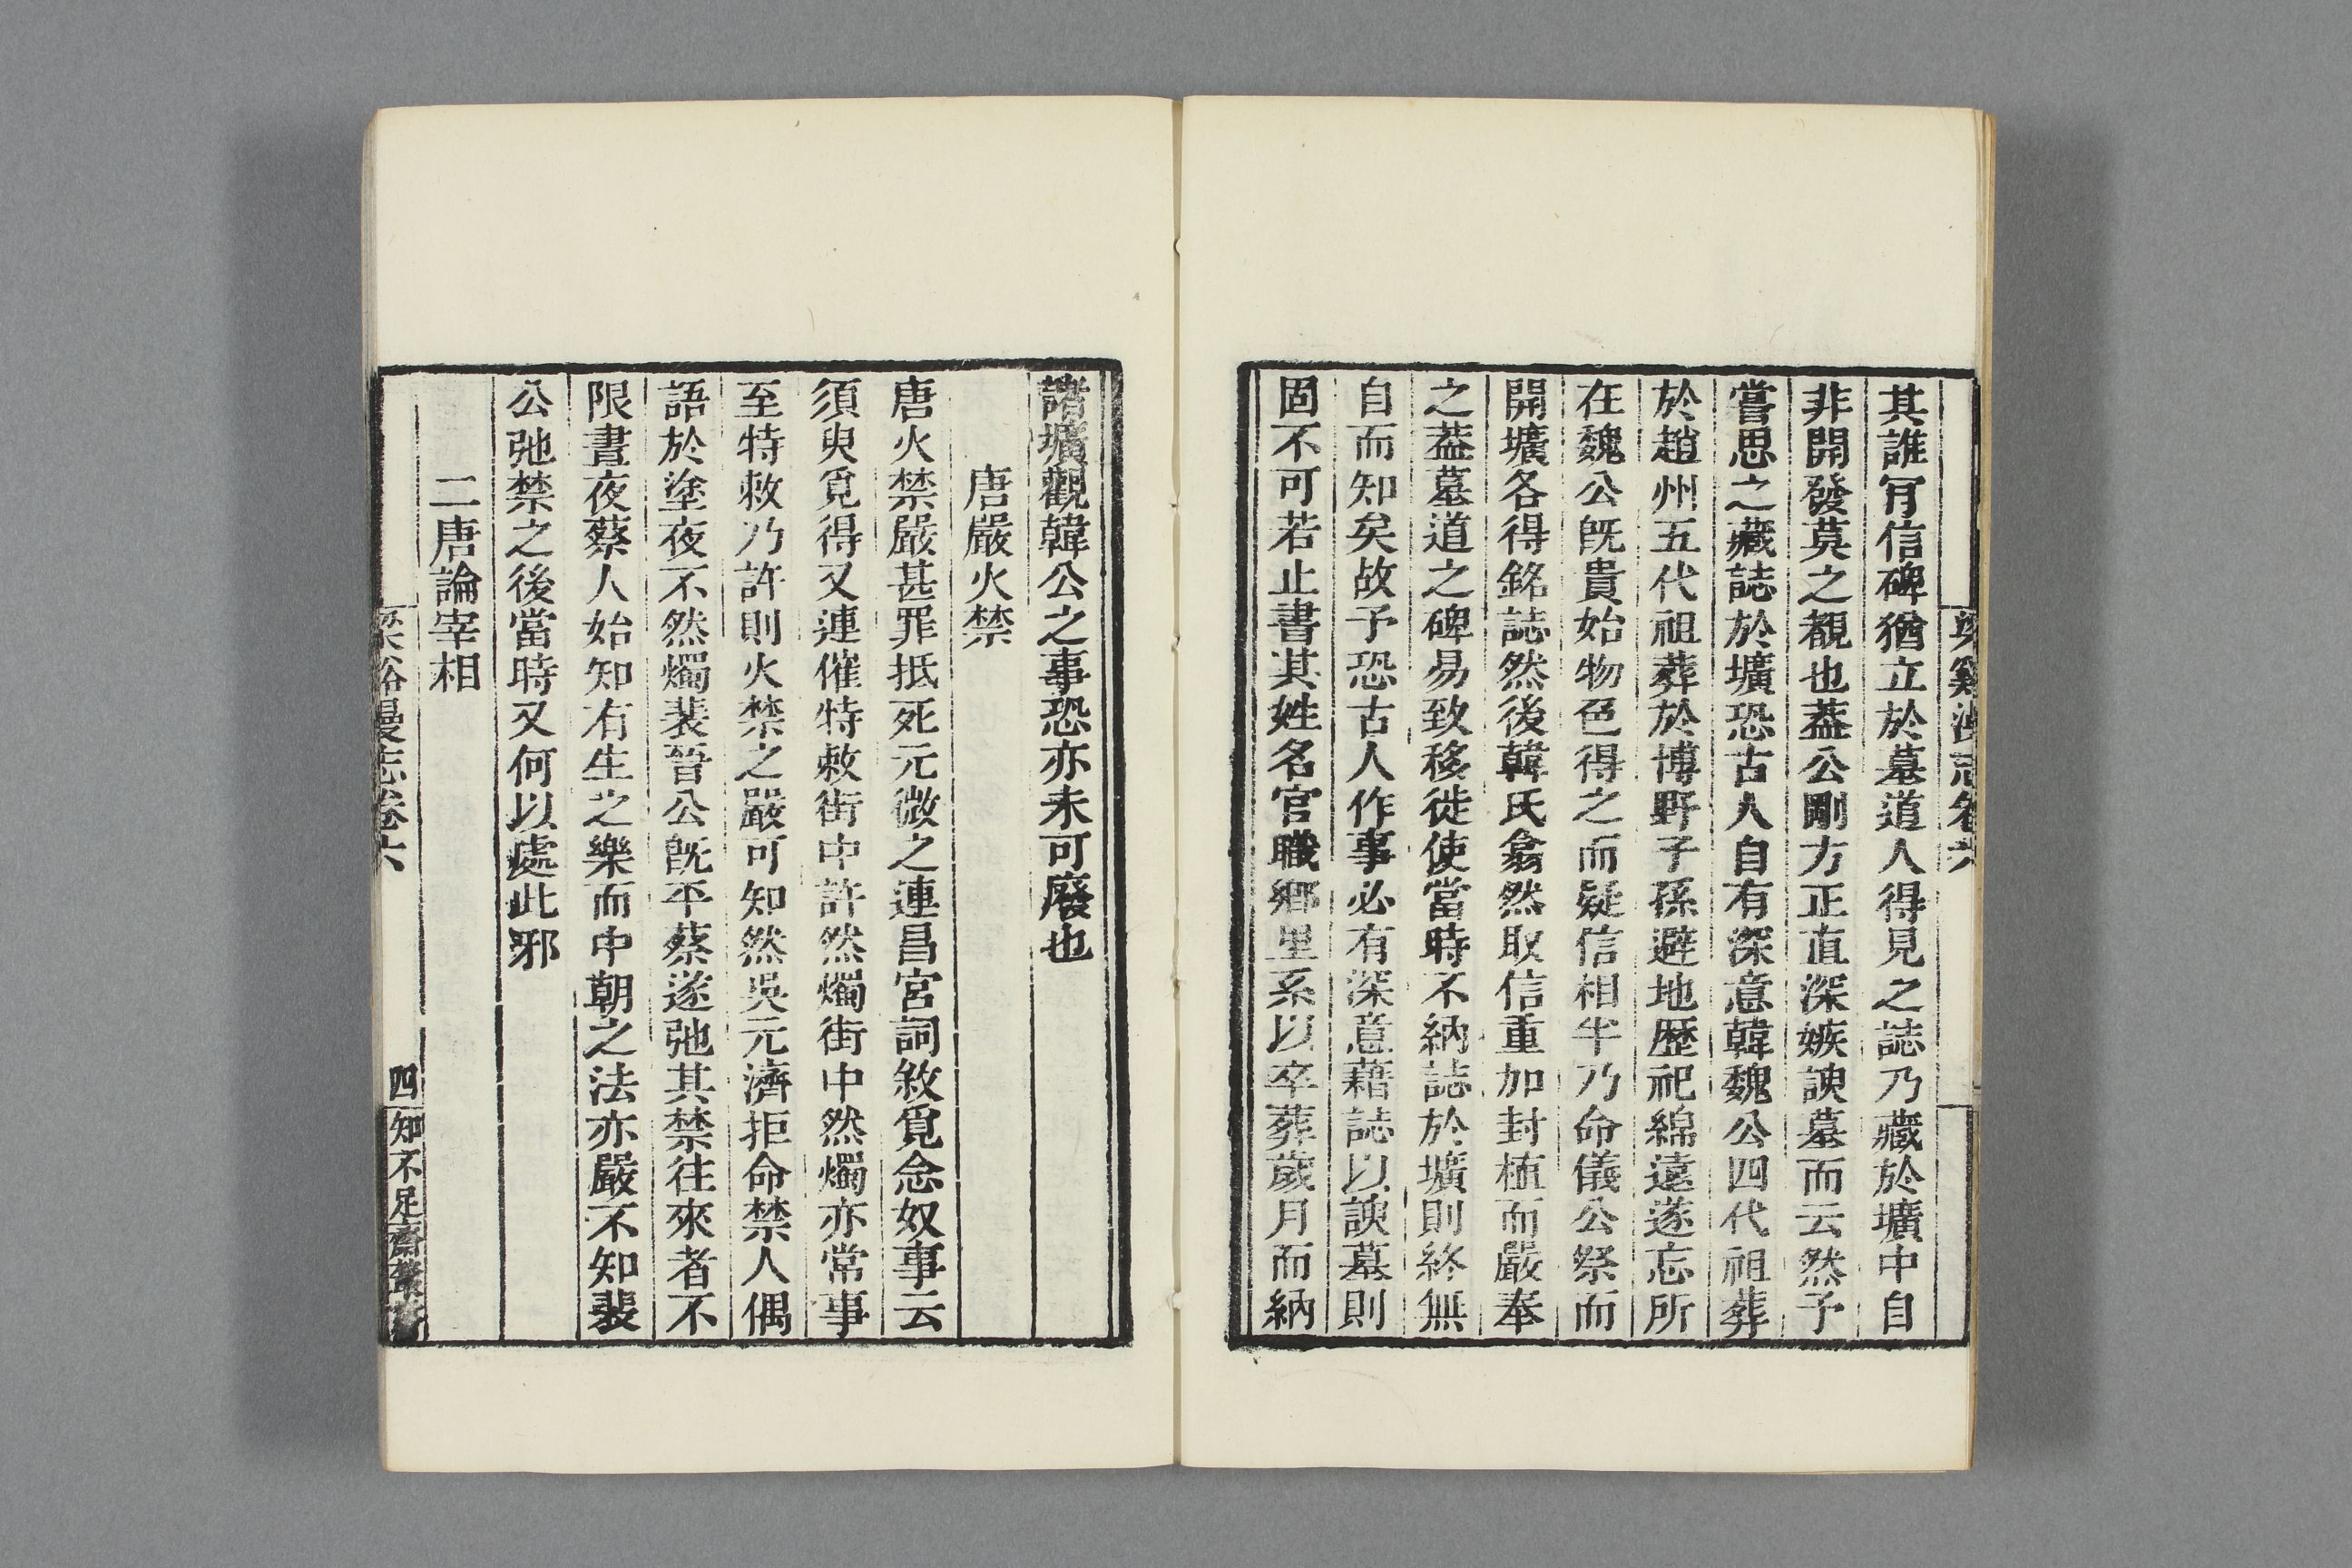 其誰肯信碑猶立於墓道人得見之誌乃藏於壙中自
非開發莫之覩也葢公剛方正直深嫉諛墓而云然予
嘗思之藏誌於壙恐古人自有深意韓魏公四代祖葬
於趙州五代祖葬於博野子孫避地歷祀綿遠遂忘所
在魏公旣貴始物色得之而疑信相半乃命儀公祭而
開壙各得銘誌然後韓氏翕然取信重加封植而嚴奉
之葢墓道之碑易致移徙使當時不納誌於壙則終無
自而知矣故予恐古人作事必有深意藉誌以諛墓則
固不可若止書其姓名官職鄉里系以卒葬歲月而納
諸壙觀韓公之事恐亦未可廢也
唐嚴火禁
唐火禁嚴甚罪抵死元微之連昌宮詞敘覓念奴事云
須臾覓得又連催特敕街中許然燭街中然燭亦常事
至特敕乃許則火禁之嚴可知然吳元濟拒命禁人偶
語於塗夜不然燭裴晉公旣平蔡遂弛其禁往來者不
限晝夜蔡人始知有生之樂而中朝之法亦嚴不知裴
公弛禁之後當時又何以處此邪
二唐論宰相
梁谿漫志卷六
四
知不足齋叢書